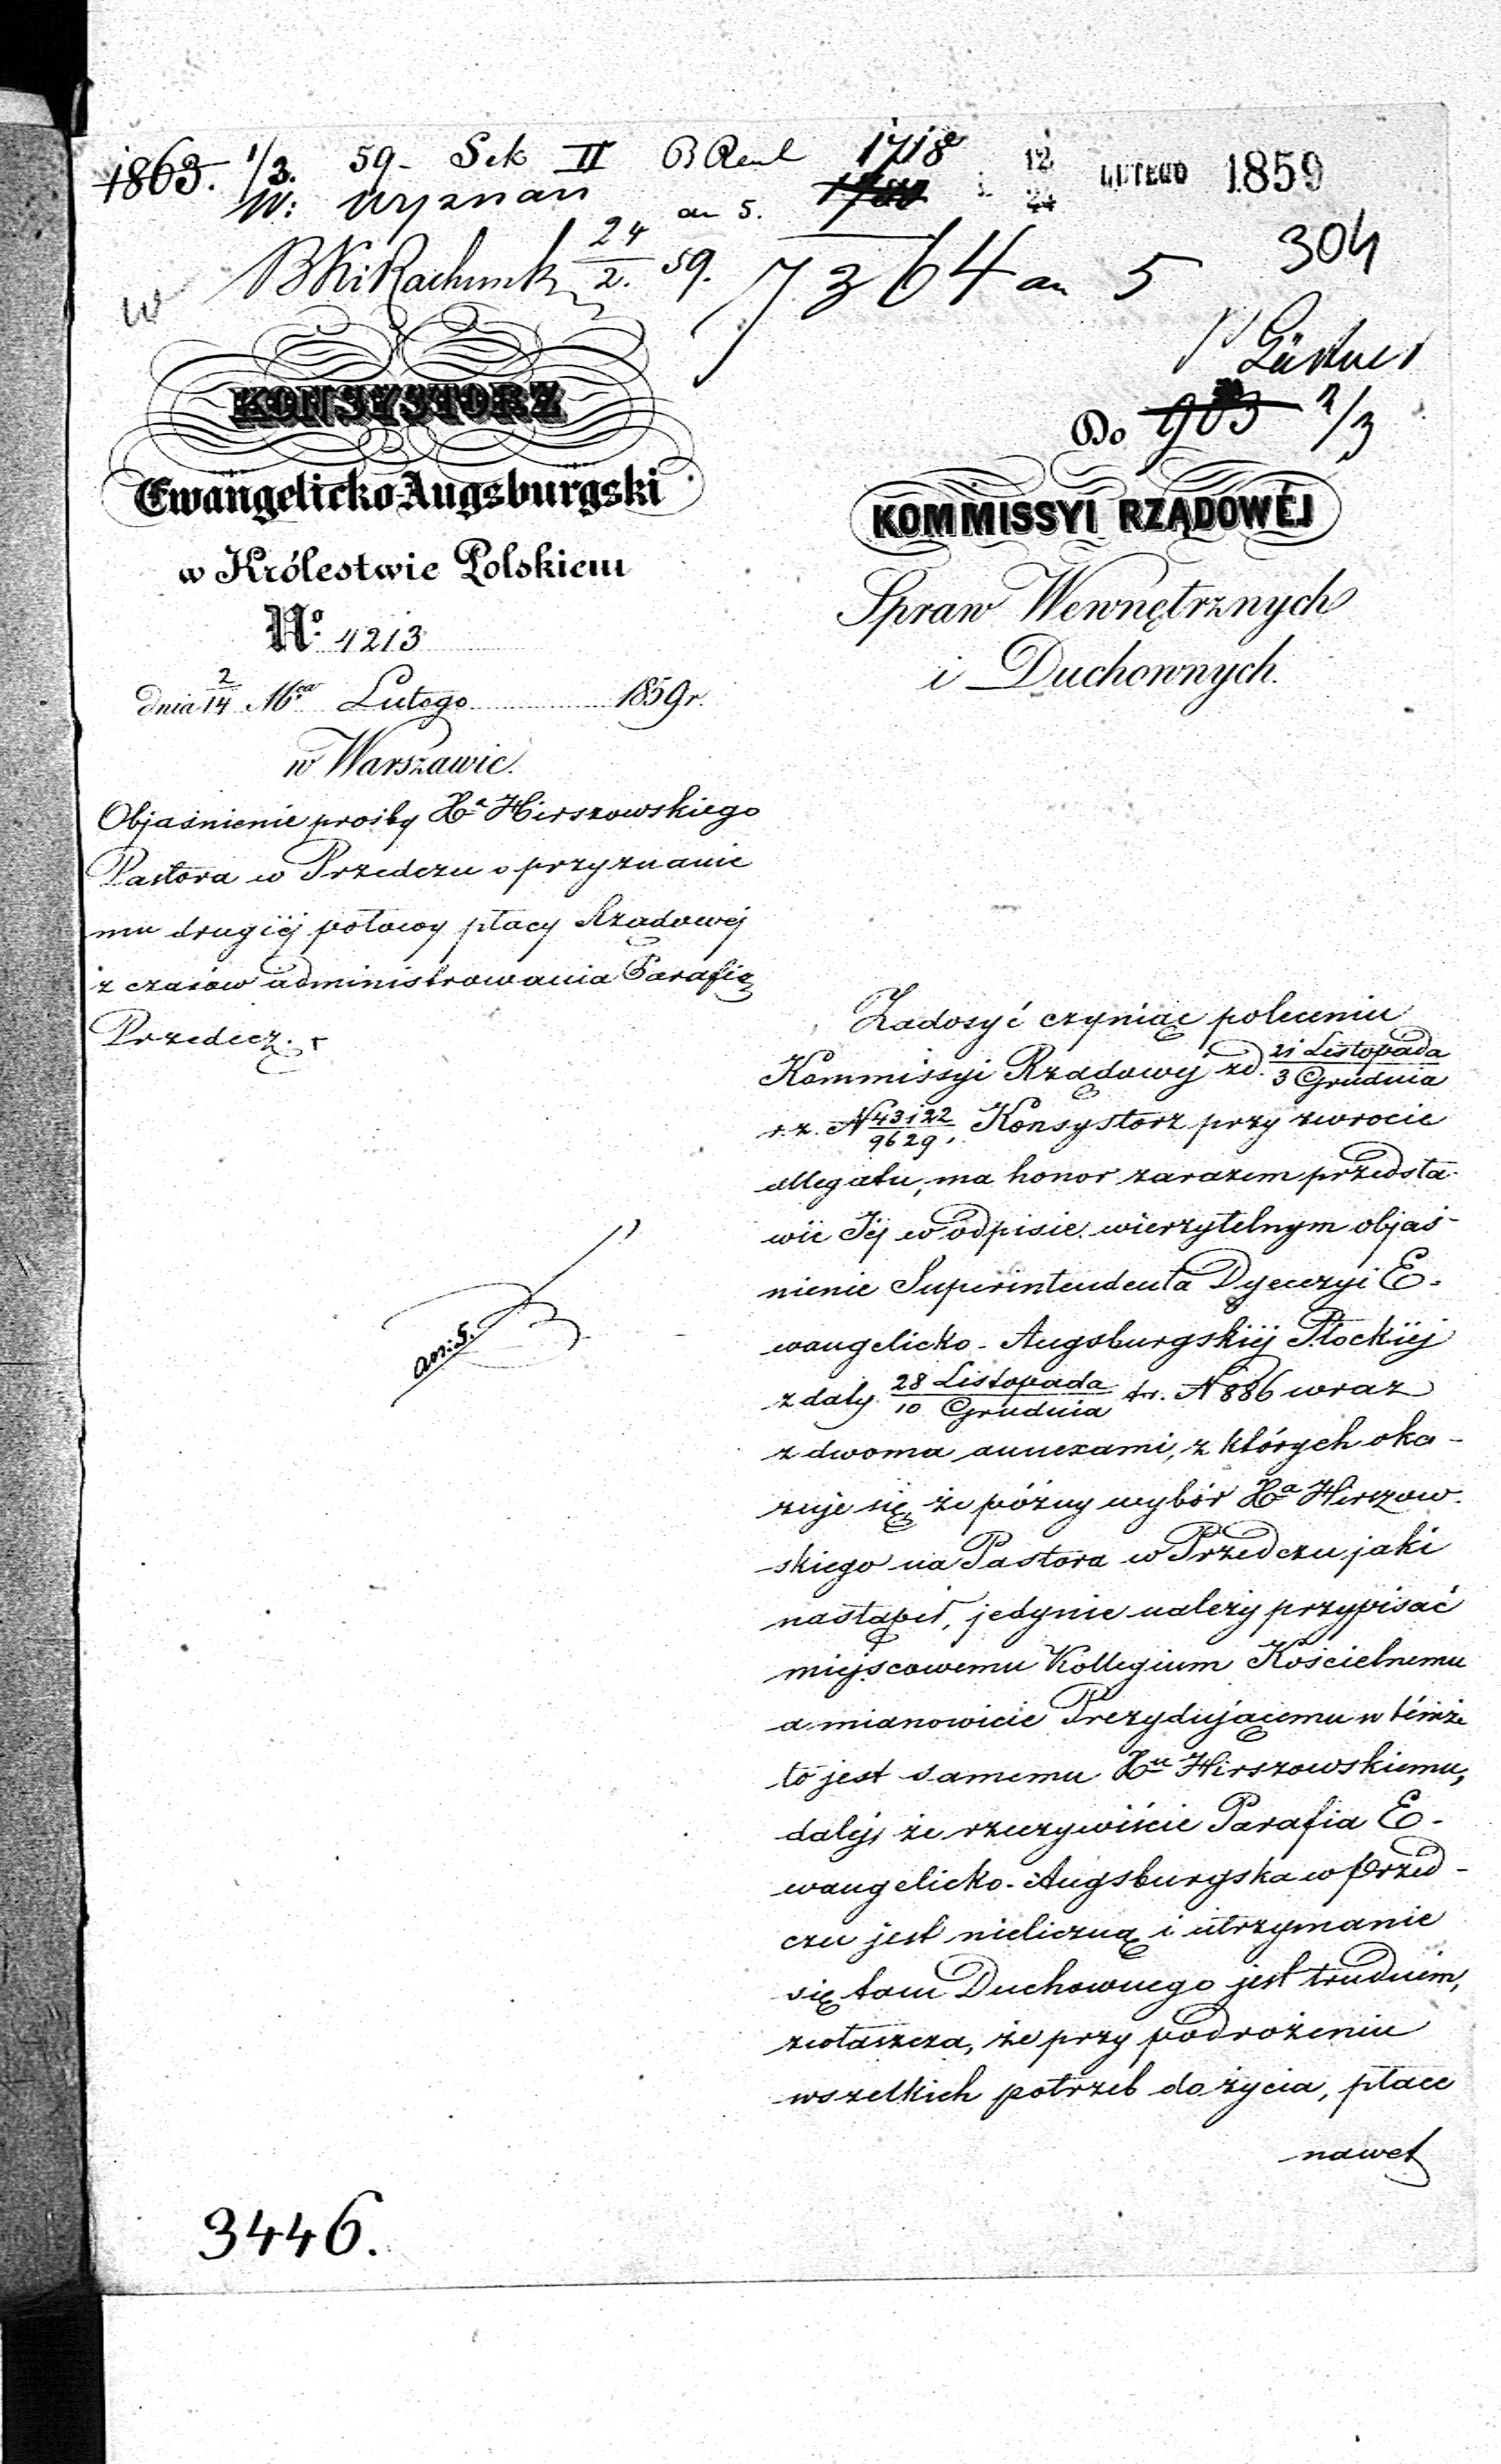 1863. 1/3. 59 - Sek II B Reul 1718
W: wyznań an 5. 12 LUTEGO 1859
24
BKi Rachunk 2. 59. 7364 an 5 304
w
Do 903 2/3
KONSYSTORZ
Ewangelicko-Augsburgski
w Królestwie Polskiem
No. 4213
dnia 2/14 Mca Lutego 1859 r.
w Warszawie.
Objaśnienie prośby Xa Hirszowskiego
Pastora w Przedczu o przyznanie
mu drugiéj połowy płacy Rządowéj
z czasów administrowania Parafią
Przedecz.
an: 5.
3446.
KOMMISSYI RZĄDOWÉJ
Spraw Wewnętrznych
i Duchownych.
Zadosyć czyniąc poleceniu
Kommissyi Rządowéj z d. 21 Listopada / 3 Grudnia
r. z. N 43122/9629, Konsystorz przy zwrocie
allegatu, ma honor zarazem przedsta-
wić Jéj w odpisie wierzytelnym objaś-
nienie Superintendenta Dyecezyi E-
wangelicko-Augsburgskiéj Płockiéj
z daty 28 Listopada / 10 Grudnia t. r. N 886 wraz
z dwoma annexami, z których oka-
zuje się że późny wybór Xa Hirszow-
skiego na Pastora w Przedczu jaki
nastąpił, jedynie należy przypisać
miejscowemu Kollegium Kościelnemu
a mianowicie Prezydującemu w témże
to jest samemu Xu Hirszowskiemu,
daléj, że rzeczywiście Parafia E-
wangelicko-Augsburgska w Przed-
czu jest nieliczną i utrzymanie
się tam Duchownego jest trudném,
zwłaszcza, że przy podrożeniu
wszelkich potrzeb do życia, płace
nawet